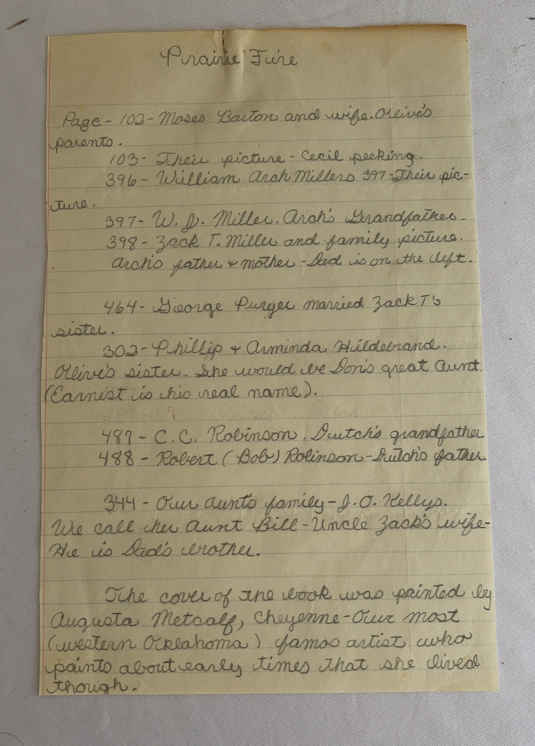 Prairie Fire
Page - 102 - Moses Barton and wife. Olive's
parents.
103 - Their picture - Cecil peeking.
396 - William Arch Millers 397 - Their pic-
ture.
397 - W. J. Miller. Arch's Grandfather -
398 - Zack T. Miller and family picture.
Arch's father + mother - Dad is on the left.
464 - George Purger married Zack T's
sister.
302 - Phillip + Arminda Hildebrand.
Olive's sister. She would be Don's great Aunt.
(Earnest is his real name).
487 - C. C. Robinson. Dutch's grandfather
488 - Robert (Bob) Robinson - Dutch's father
344 - Our aunt's family - J. O. Kellys.
We call her Aunt Bill - Uncle Zack's wife -
He is Dad's brother.
The cover of the book was painted by
Augusta Metcalf, Cheyenne - Our most
(western Oklahoma) famos artist who
paints about early times that she lived
though.